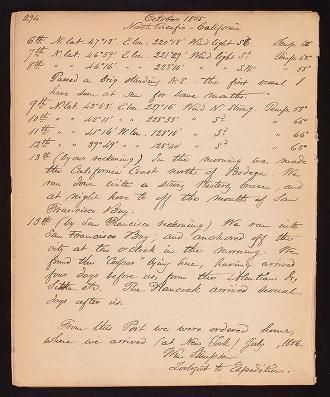 294
October 1855.
North Pacific - California
6th N. lat. 47°13' E. lon. 220°18' Wind light SE Temp. 58°
7th N. lat. 46°59' E. lon. 221°09' Wind light S. Temp. 62°
8th " 46°16' " " 223°10' " S.W. " 58°
Passed a brig standing N.E. - the first vessel I
have seen at sea for some months.
9th N. lat. 43°53' E. lon. 227°16' Wind N. Strong. Temp. 58°
10th " " 40°11' " 225°35' " " 66°
11th " " 41°16' W. lon. 128°15' " " 65°
12th " " 39°49' " 125°50' " " 63°
13th (by our reckoning) In the morning we made
the California Coast north of Bodega. We
ran down with a strong Westerly breeze, and
at night hove to off the mouth of San
Francisco Bay.
13th (by San Francisco reckoning) We ran into
San Francisco Bay, and anchored off the
city at ten o'clock in the morning. We
found the "Cooper" lying here, having arrived
four days before us, from the Aleutians Is,
Sitka, etc. The Hancock arrived several
days after us.
From this Port we were ordered home,
where we arrived (at New York) July, 1856.
Wm Stimpson
Zoologist to Expedition.